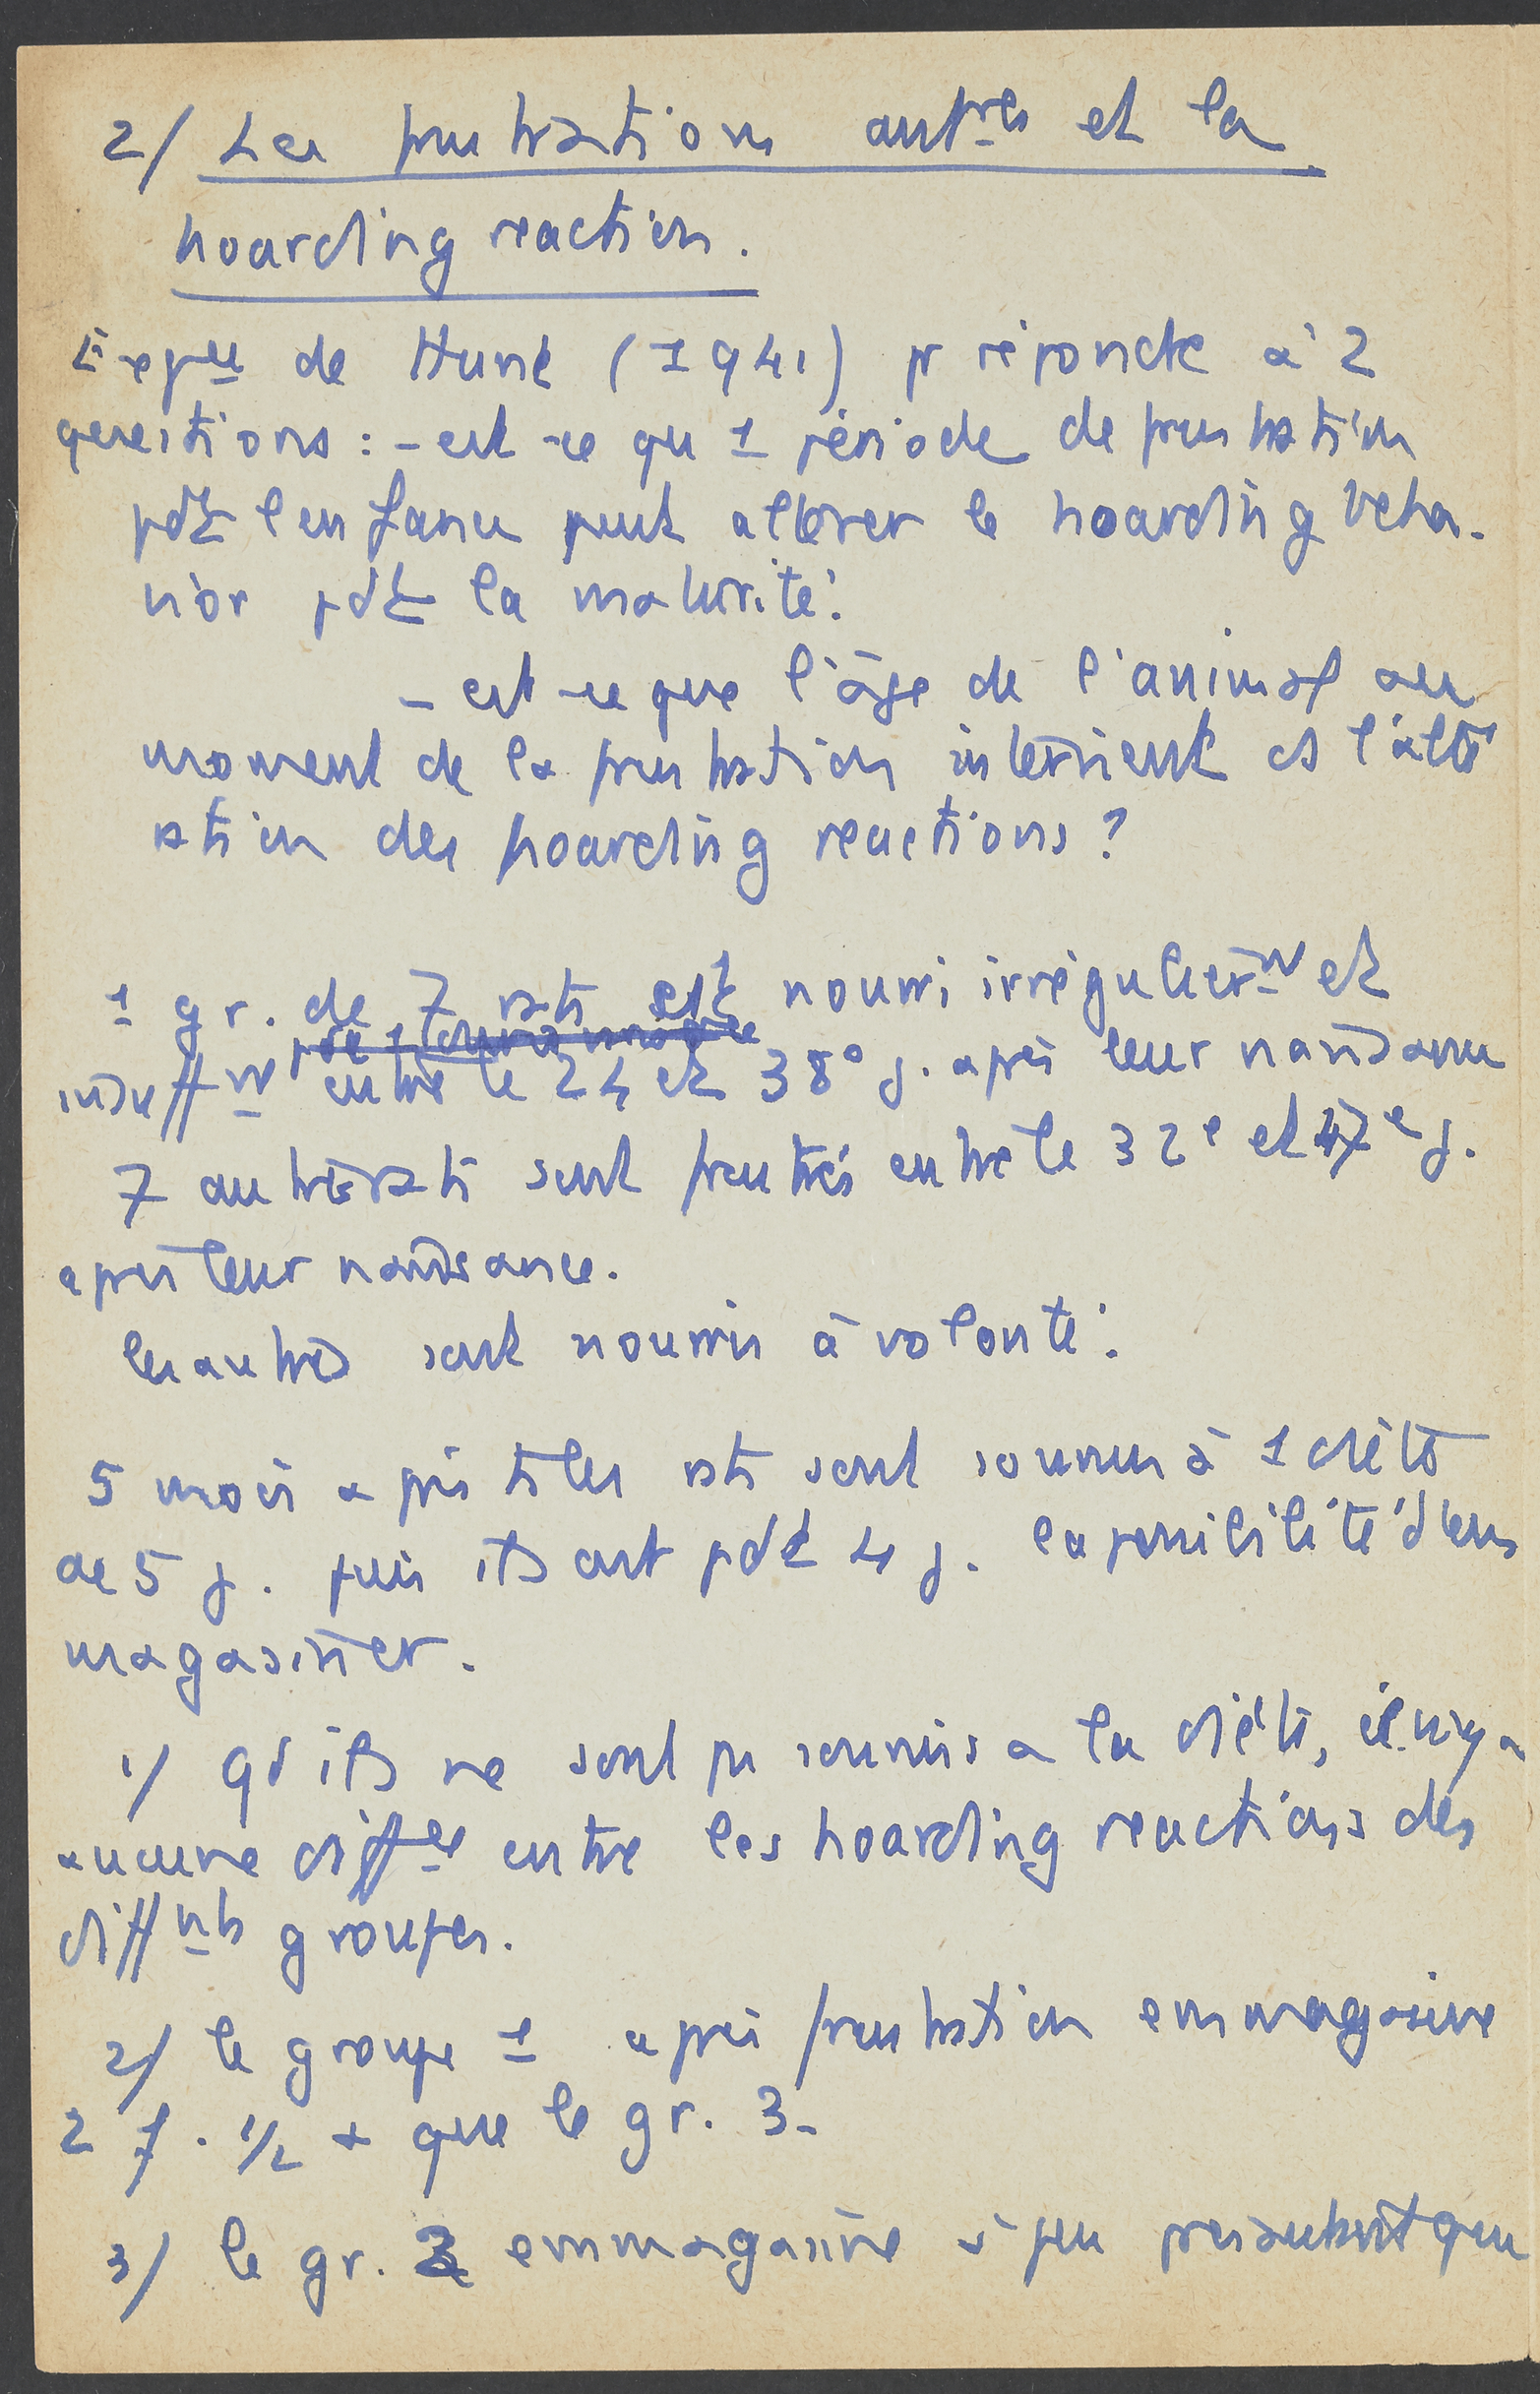 2/ Les frustrations antres et la
hoarding reaction.
Expce de Hunt (1941) pr répondre à 2
questions : - est-ce qu 1 période de frustration
pdt l'enfance peut altérer le hoarding beha-
vior pdt la maturité.
- est-ce que l'âge de l'animal au
moment de la frustration intervient ds l'alté
ration des hoarding reactions ?
1 gr. de 7 rats est nourri irrégulièrnt et
insuffnt entre le 24 et 38° j. après leur naissance
7 autres rats sont frustrés entre le 32e et 47e j.
après leur naissance.
les autres sont nourris à volonté.
5 mois après ts les rats sont soumis à 1 diète
de 5 j. puis ils ont pdt 4 j. la possibilité d'em
magasiner.
1/ qd ils ne sont ps soumis a la diète, il n'y a
aucune diffce entre les hoarding reactions des
diffnts groupes.
2/ le groupe 1 après frustration emmagasine
2 f. 1/2 + que le gr. 3.
3/ le gr. 2 emmagasine à peu près autant que